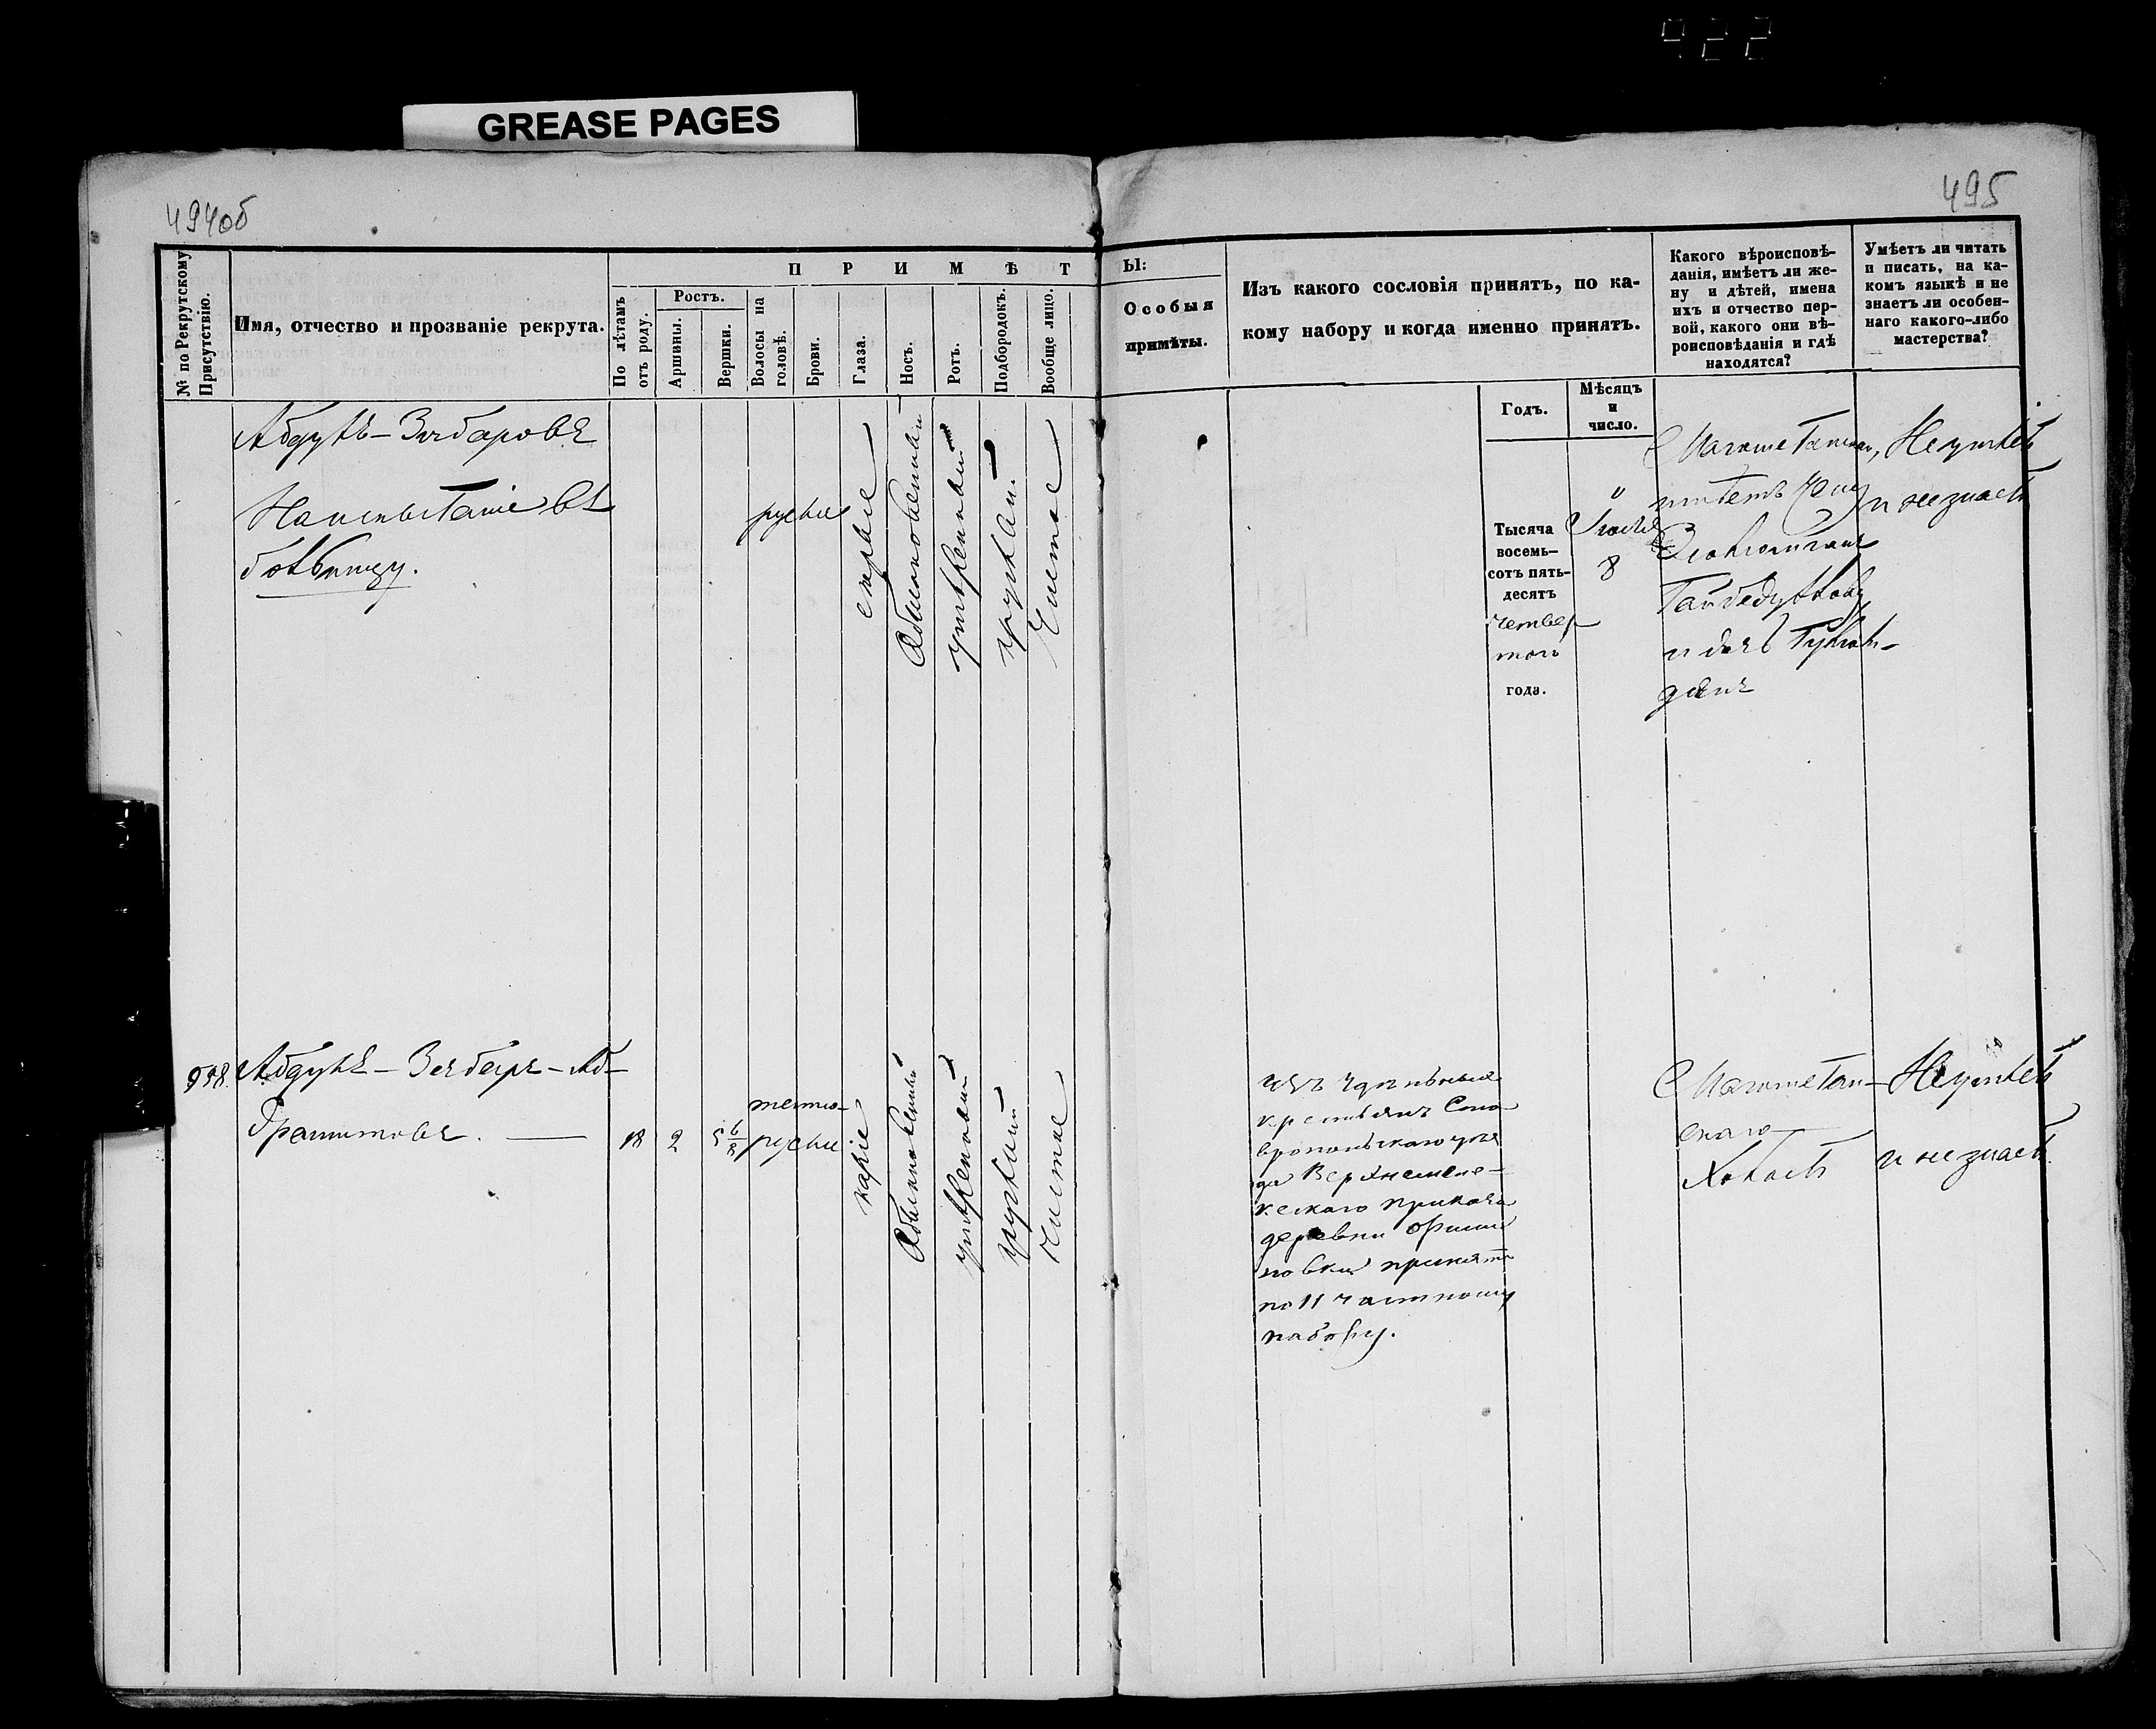 422
GREASE PAGES
494 об
495
№ по Рекрутскому
Присутствію.
Имя, отчество и прозваніе рекрута.
П Р И М Ѣ Т
Ы:
По лѣтамъ
отъ роду.
Ростъ.
Аршины.
Вершки.
Волосы на
головѣ.
Брови.
Глаза.
Носъ.
Ротъ.
Подбородокъ.
Вообще лицо.
Особыя
примѣты.
Изъ какого сословія принятъ, по ка-
кому набору и когда именно принятъ.
Годъ.
Мѣсяцъ
и
число.
Какого вѣроисповѣ-
данія, имѣетъ ли же-
ну и дѣтей, имена
ихъ и отчество пер-
вой, какого они вѣ-
роисповѣданія и гдѣ
находятся?
Умѣетъ ли читать
и писать, на ка-
комъ языкѣ и не
знаетъ ли особен-
наго какого-либо
мастерства?
Абдулъ-Зябаровъ
На испытаніе въ
больницу.
русые
сѣрые
обыкновенный
умѣренный
круглый.
Чистое
Тысяча
восемь-
сотъ пять-
десятъ
четвер-
таго
года.
8
Магометанск,
имѣетъ жену
и дочь
Неумѣетъ
и не знаетъ
958. Абдулъ-Зябаръ-Аб-
18
2
5 6/8
темно-
русые
каріе
Обыкновенный
умѣренный
круглый
Чистое
изъ удѣльныхъ
крестьянъ Став-
ропольскаго уѣз
да
приказа
деревни
новки принятъ
по 11 частному
набору.
Магометан-
скаго
Холостъ
Неумѣетъ
и не знаетъ